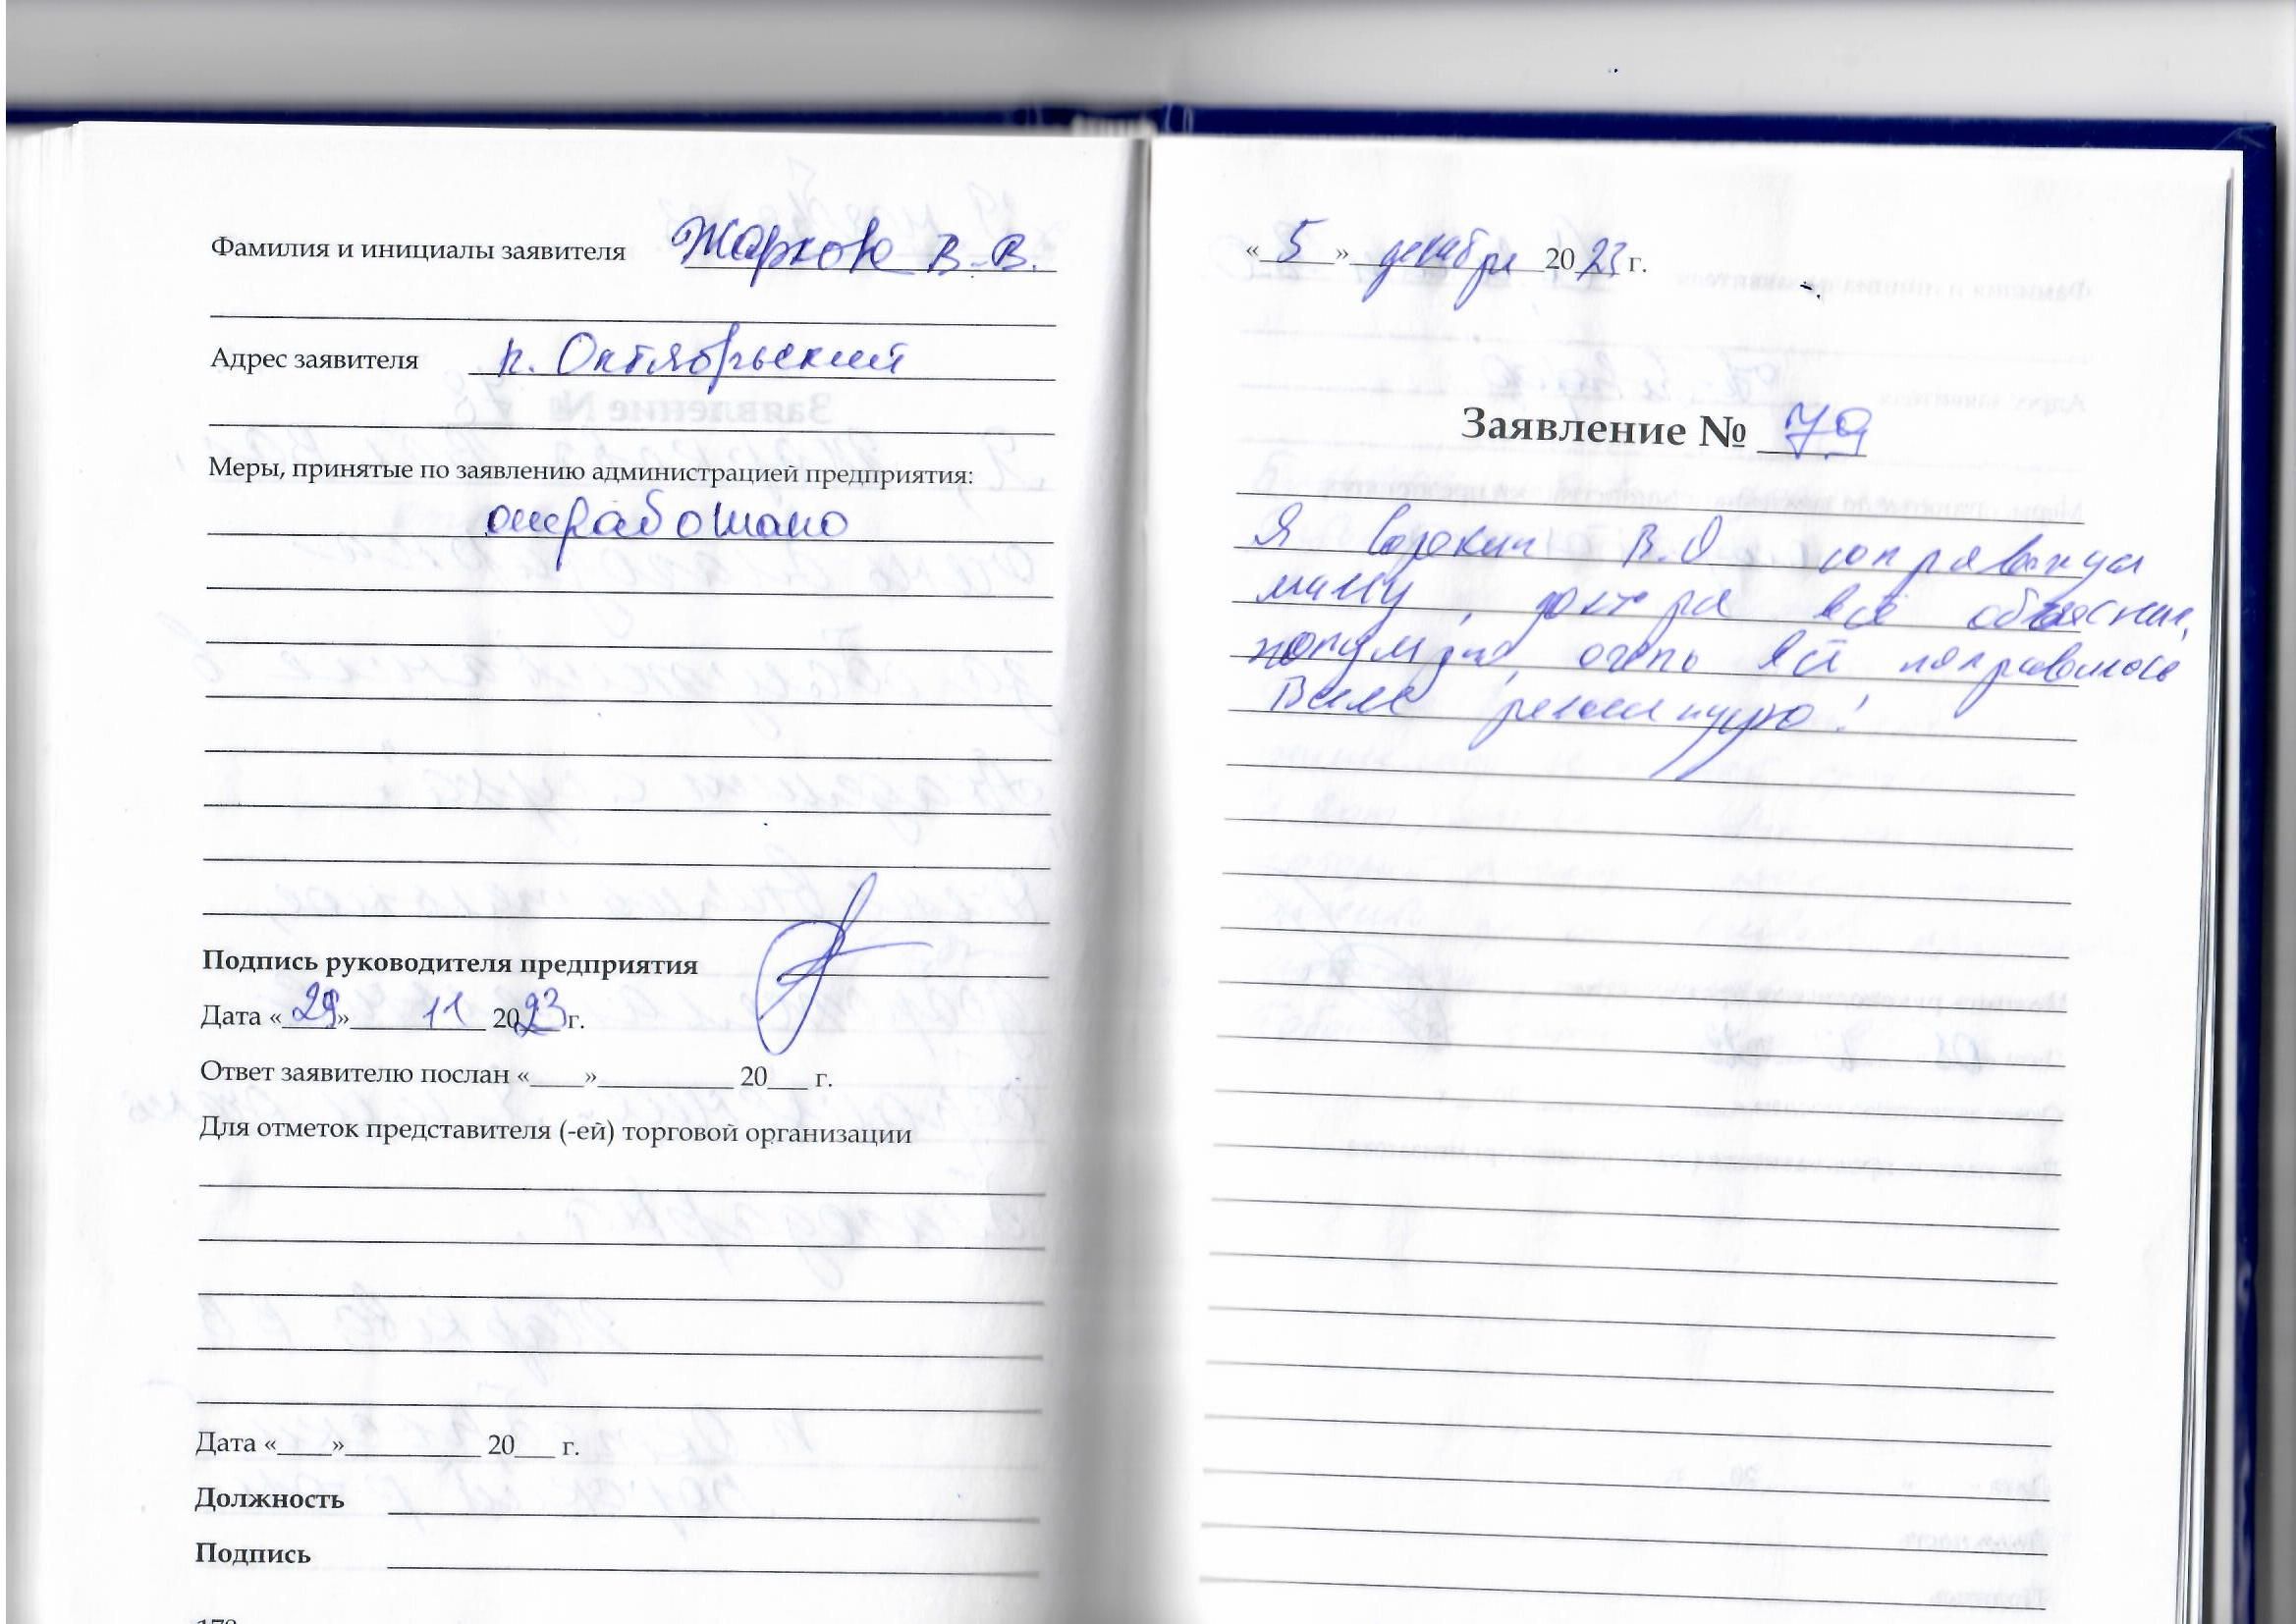 Фамилия и инициалы заявителя Жаркова В.В.
Адрес заявителя п. Октябрьский
Меры, принятые по заявлению администрацией предприятия:
отработано
Подпись руководителя предприятия
Дата «29» 11 2023 г.
Ответ заявителю послан «____»__________ 20___ г.
Для отметок представителя (-ей) торговой организации
Дата «____»__________ 20___ г.
Должность
Подпись
«5» декабря 2023 г.
Заявление № 79
Я Сорокин В.О
маму, доктора всё объяснили,
очень всё понравилось
Всем рекомендую!